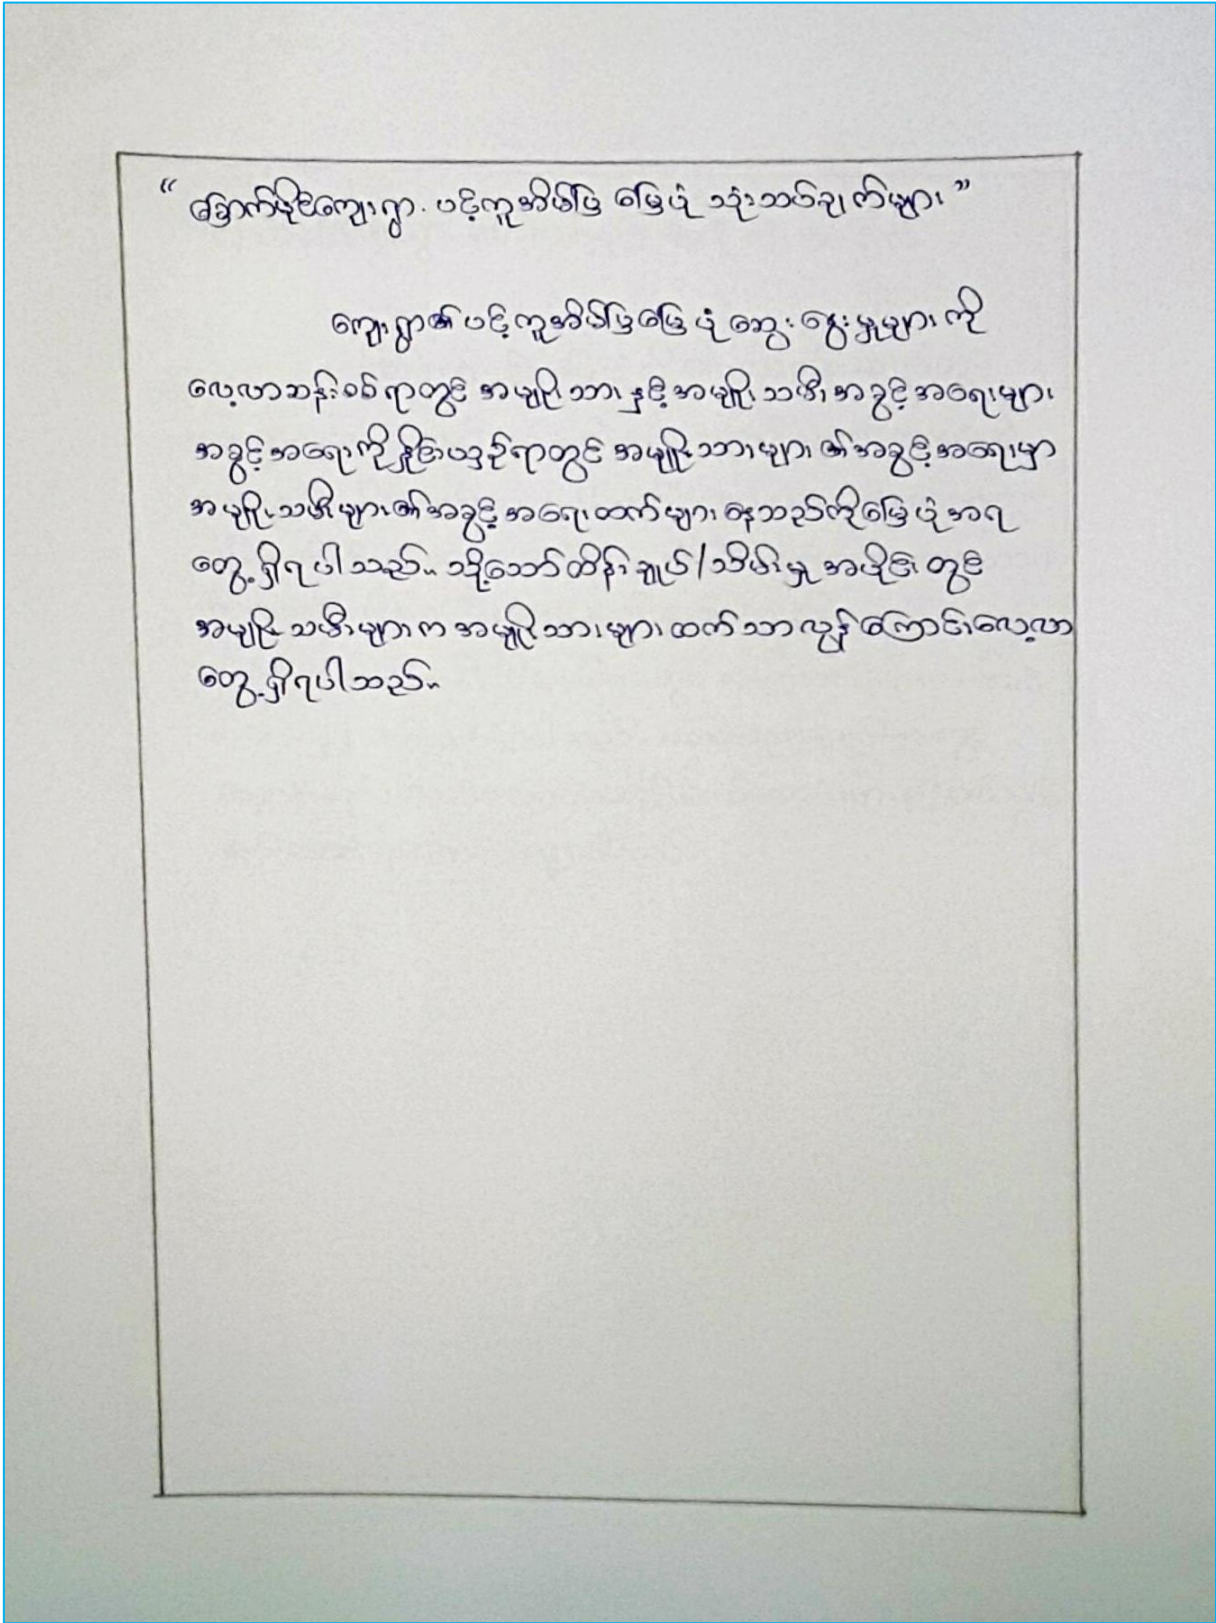 “ခြောက်မိုင်ကျေးရွာ. ပင့်ကူအိမ်ပြ မြေပုံ သုံးသပ်ချက်များ”
ကျေးရွာ၏ ပင့်ကူအိမ်ပြမြေပုံ ဆွေးနွေးမှုများကို
လေ့လာဆန်းစစ်ရာတွင် အမျိုးသား နှင့် အမျိုးသမီး အခွင့်အရေးများ
အခွင့်အရေးကို နှိုင်းယှဉ်ရာတွင် အမျိုးသားများ၏အခွင့်အရေးမှာ
အမျိုးသမီးများ၏အခွင့်အရေးထက်များနေသည်ကိုမြေပုံအရ
တွေ့ရှိရပါသည်။ သို့သော်ထိန်းချုပ်/သိမ်းမှု အပိုင်းတွင်
အမျိုးသမီးများက အမျိုးသားများထက်သာလွန်ကြောင်းလေ့လာ
တွေ့ရှိရပါသည်။